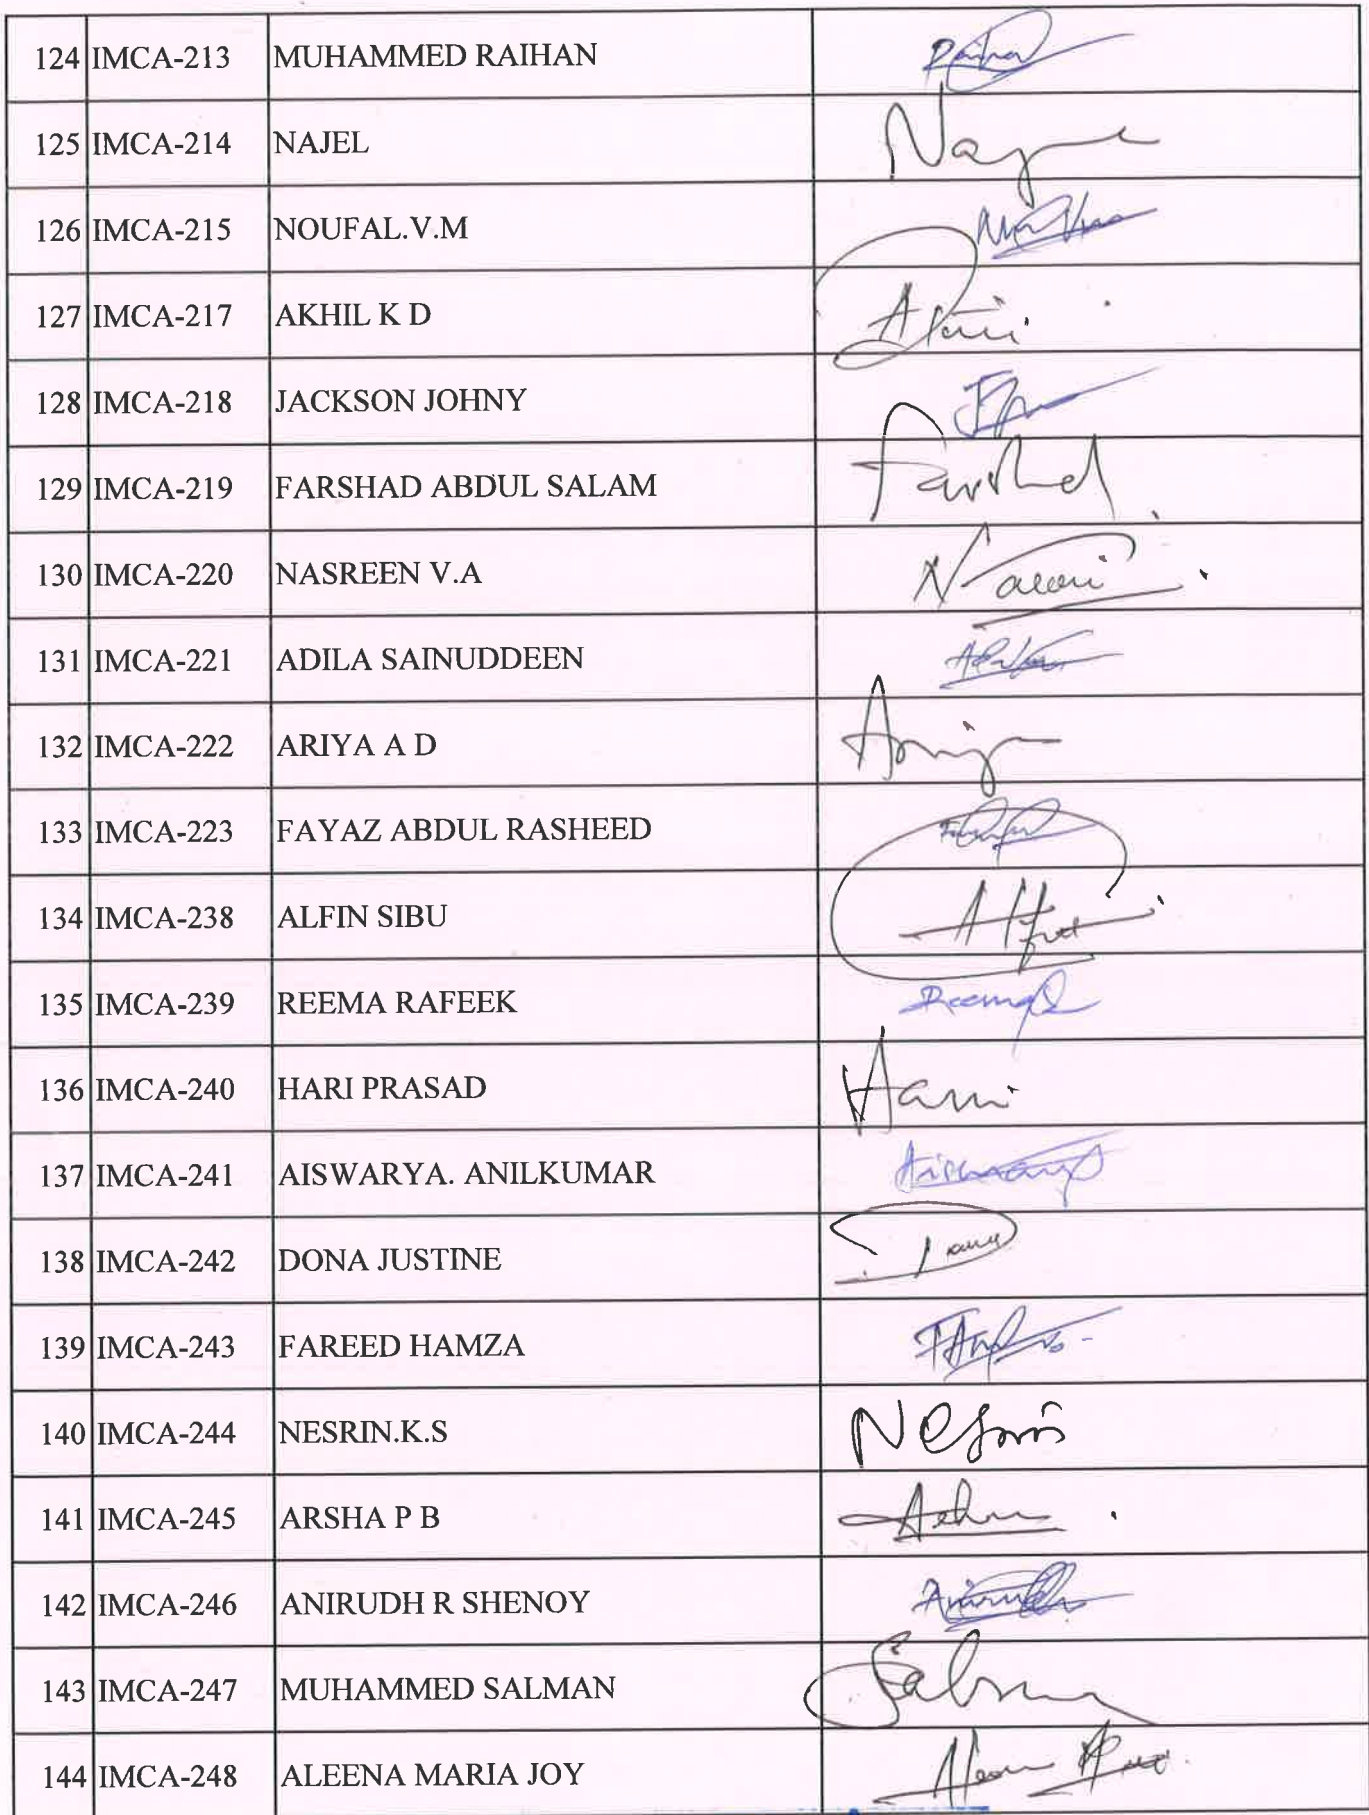 124 IMCA-213 MUHAMMED RAIHAN
125 IMCA-214 NAJEL
126 IMCA-215 NOUFAL.V.M
127 IMCA-217 AKHIL K D
128 IMCA-218 JACKSON JOHNY
129 IMCA-219 FARSHAD ABDUL SALAM Farshad
130 IMCA-220 NASREEN V.A
131 IMCA-221 ADILA SAINUDDEEN
132 IMCA-222 ARIYA A D Ariya
133 IMCA-223 FAYAZ ABDUL RASHEED
134 IMCA-238 ALFIN SIBU
135 IMCA-239 REEMA RAFEEK Reema
136 IMCA-240 HARI PRASAD Hari
137 IMCA-241 AISWARYA. ANILKUMAR Aiswarya
138 IMCA-242 DONA JUSTINE
139 IMCA-243 FAREED HAMZA
140 IMCA-244 NESRIN.K.S Nesrin
141 IMCA-245 ARSHA P B
142 IMCA-246 ANIRUDH R SHENOY Anirudh
143 IMCA-247 MUHAMMED SALMAN
144 IMCA-248 ALEENA MARIA JOY